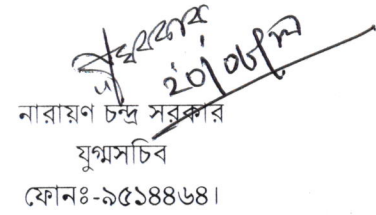 নারায়ণ চন্দ্র সরকার
যুগ্মসচিব
ফোনঃ-৯৫১৪৪৬৪।